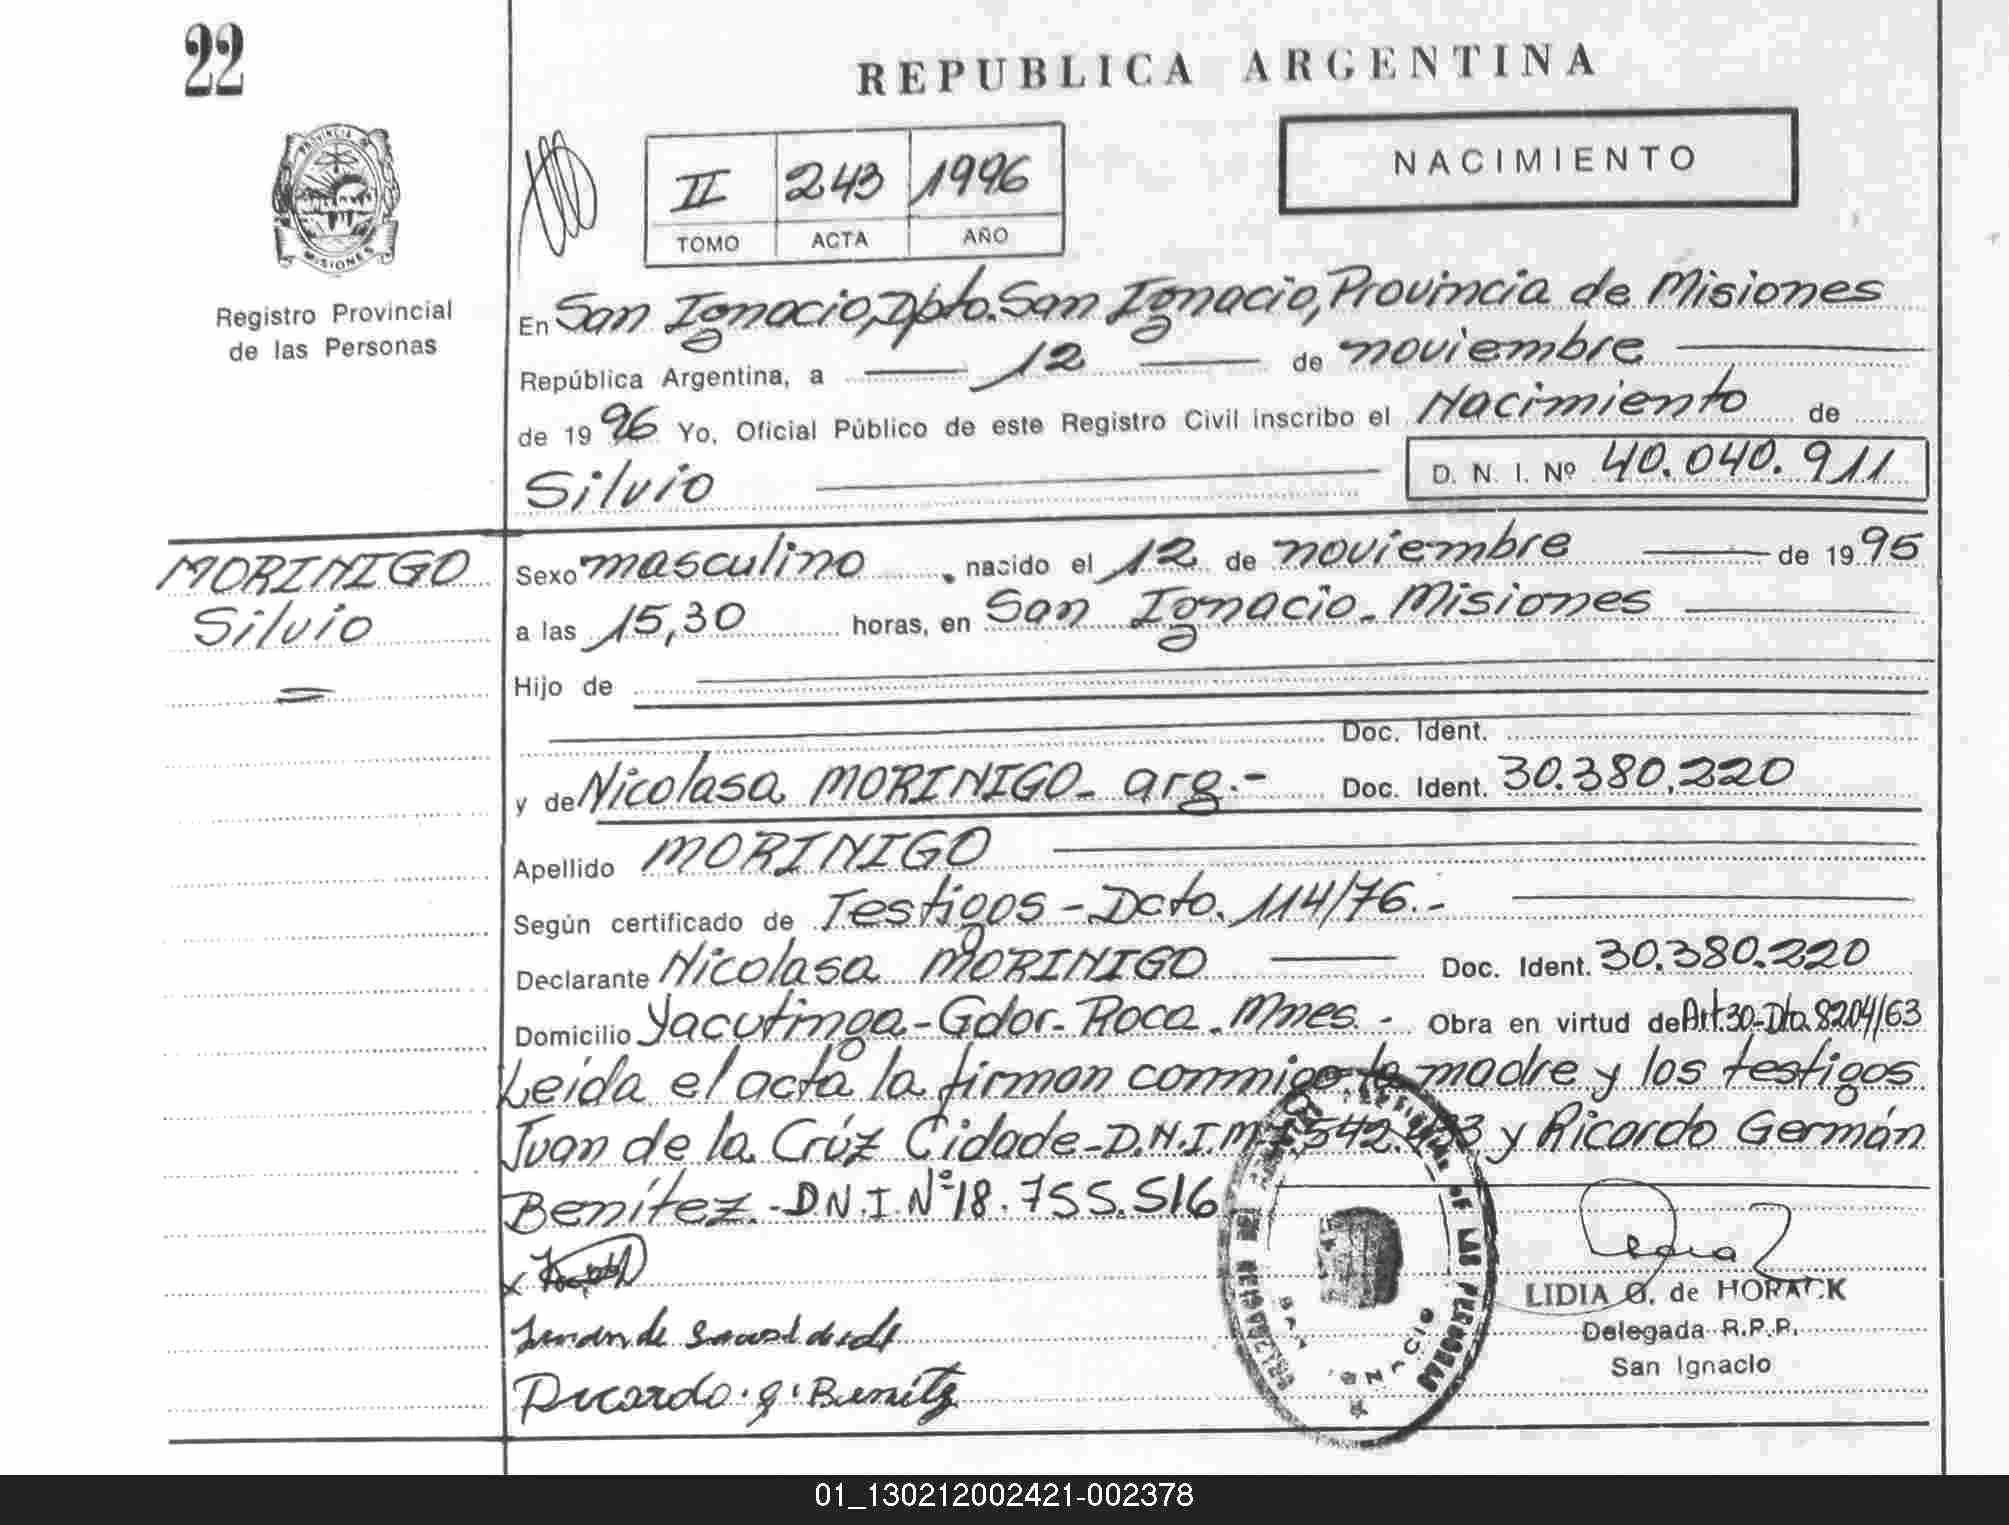 22
REPUBLICA ARGENTINA
PROVINCIA DE
MISIONES
Registro Provincial
de las Personas
II 243 1996
TOMO ACTA AÑO
NACIMIENTO
En San Ignacio, Dpto. San Ignacio, Provincia de Misiones
República Argentina, a 12 de noviembre
de 1996 Yo, Oficial Público de este Registro Civil inscribo el Nacimiento de
Silvio D. N. I. Nº 40.040.911
MORINIGO
Silvio
Sexo masculino, nacido el 12 de noviembre de 1995
a las 15,30 horas, en San Ignacio - Misiones
Hijo de
Doc. Ident.
y de Nicolasa MORINIGO - arg.- Doc. Ident. 30.380.220
Apellido MORINIGO
Según certificado de Testigos - Dcto. 114/76.-
Declarante Nicolasa MORINIGO Doc. Ident. 30.380.220
Domicilio Yacutinga - Gdor. Roca - Mnes. - Obra en virtud de Art. 30 - Dto. 8204/63
Leída el acta la firman conmigo la madre y los testigos
Juan de la Crúz Cidade - D.N.I. y Ricardo Germán
Benítez. - D.N.I. Nº 18.755.516
Ricardo. G. Benitez
LIDIA G. de HORACK
Delegada R.P.P.
San Ignacio
DE LAS PERSONAS
SAN IGNACIO
01_130212002421-002378